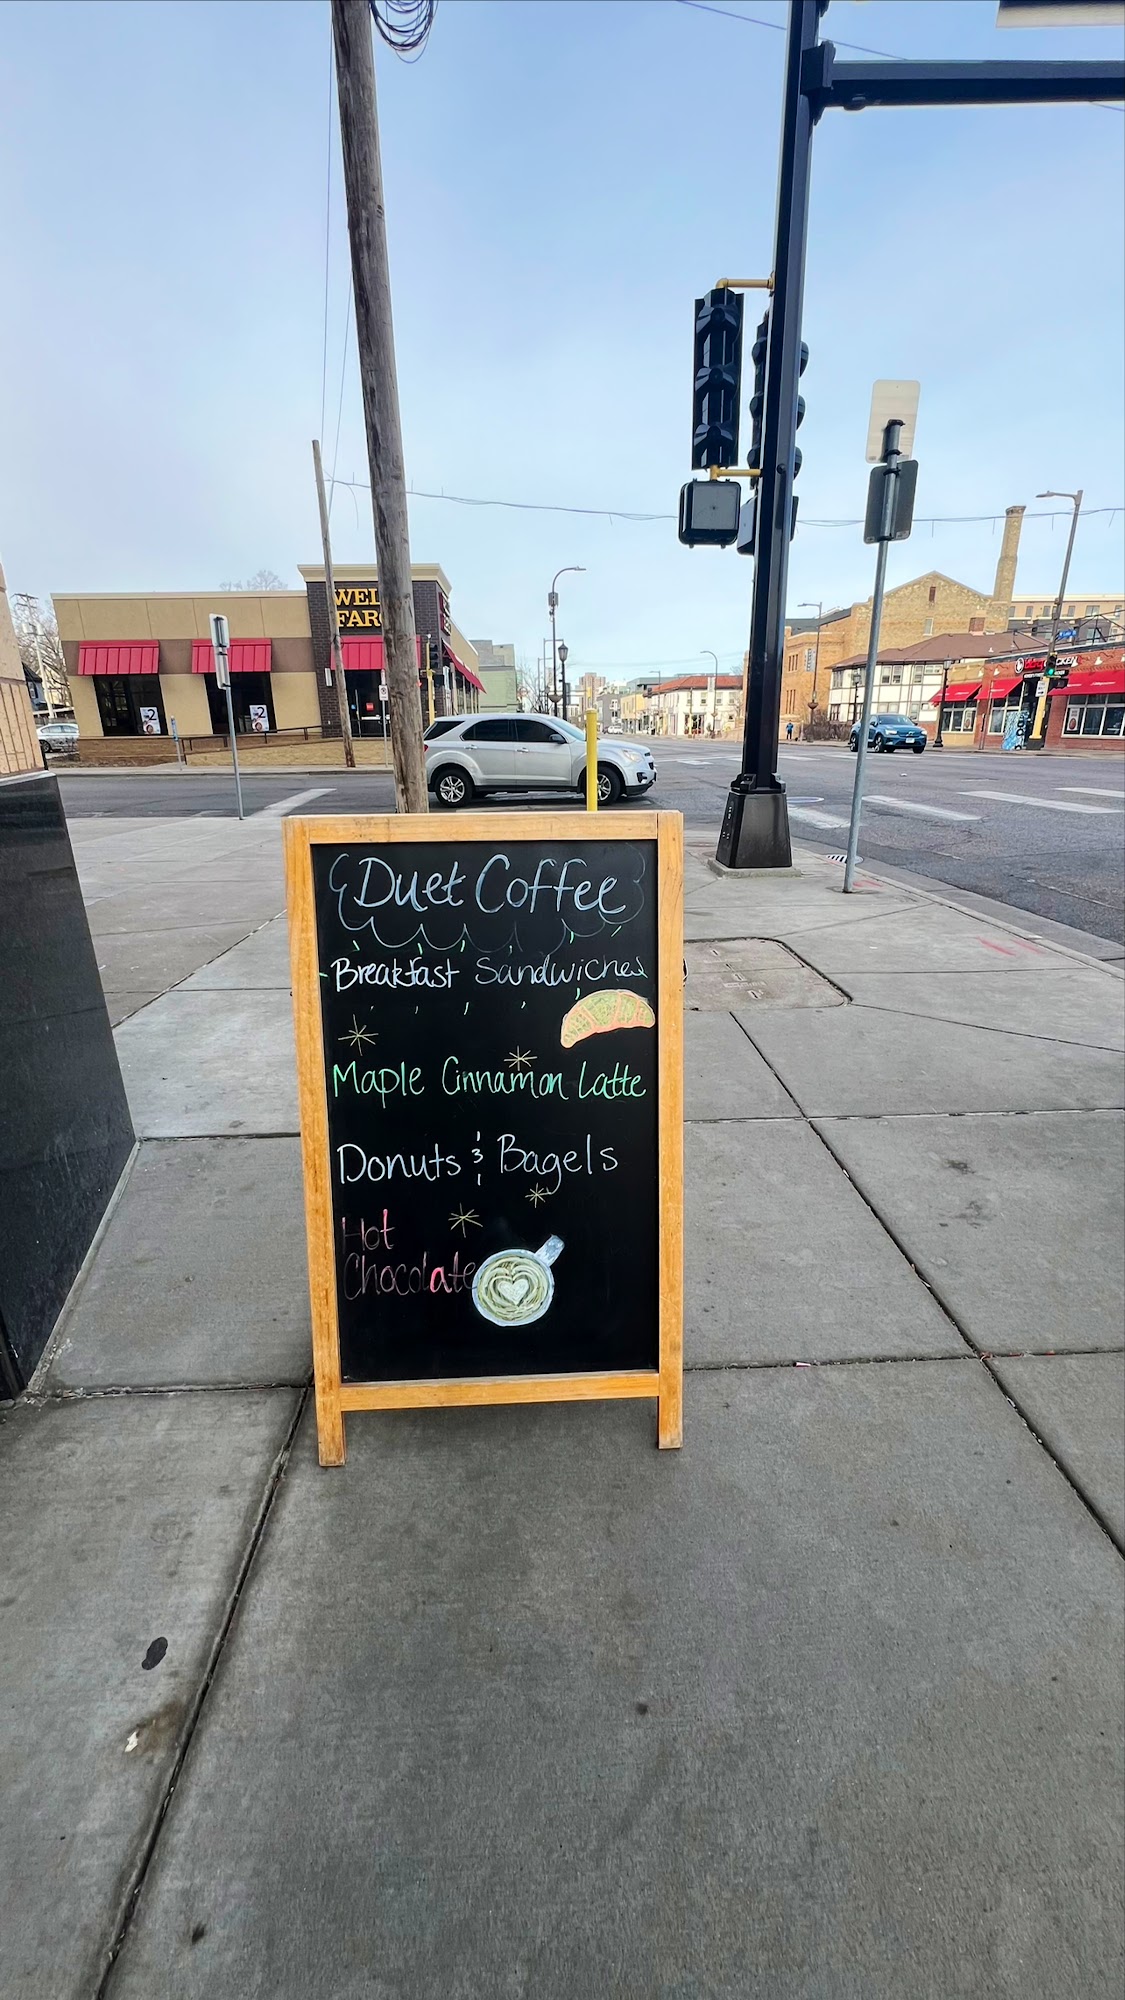 WEL
FAR
$2
$2
Duet Coffee
Breakfast Sandwiches
Maple Cinnamon Latte
Donuts & Bagels
Hot
Chocolate